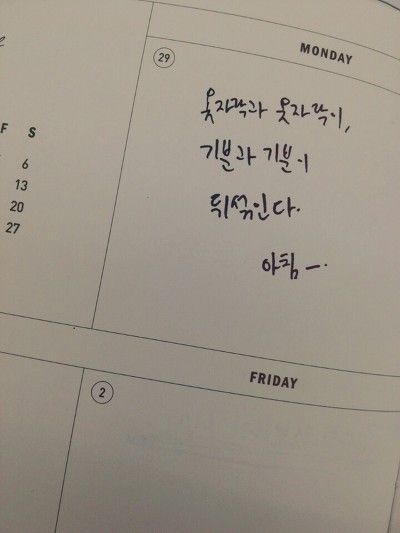 MONDAY
29
옷자락과 옷자락이,
기분과 기분이
뒤섞인다.
아침 ㅡ.
F S
6
13
20
27
FRIDAY
2